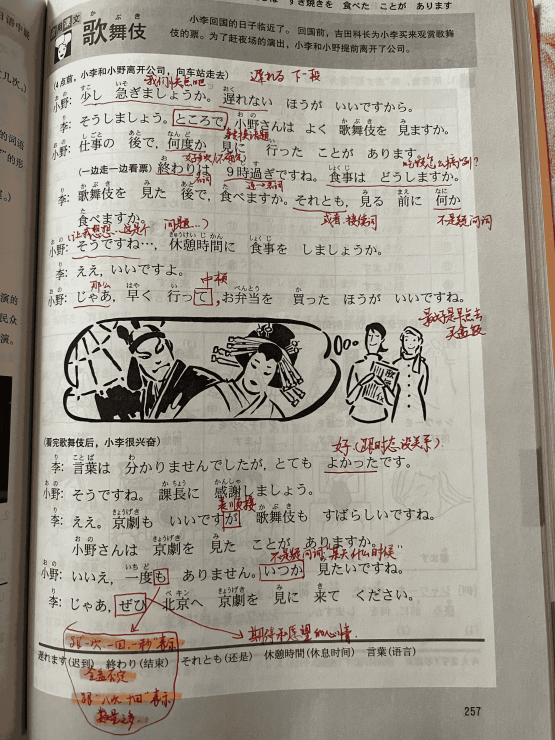 すき焼きを 食べた ことが あります
应用课文
歌舞伎
小李回国的日子临近了。回国前，吉田科长为小李买来观赏歌舞
伎的票。为了赶夜场的演出，小李和小野提前离开了公司。
(4点前，小李和小野离开公司，向车站走去)
我们快点吧
遅れる 下一段
小野: 少し 急ぎましょうか。遅れない ほうが いいですから。
李: そうしましょう。ところで，小野さんは よく 歌舞伎を 見ますか。
转换话题
小野: 仕事の 後で，何度か 見に 行った ことが あります。
好多次(不确定)
(一边走一边看票)
小野: 終わりは 9時過ぎですね。食事は どうしますか。
名词
吃饭怎么病例?
李: 歌舞伎を 見た 後で，食べますか。それとも，見る 前に 何か
食べますか。
或者 接续词
不是疑问词
(让我想想…这是个 问题…)
小野: そうですね…，休憩時間に 食事を しましょうか。
李: ええ，いいですよ。
那么
中顿
小野: じゃあ，早く 行って，お弁当を 買った ほうが いいですね。
最好是早点去
买盒饭
(看完歌舞伎后，小李很兴奋)
好 (跟时态没关系)
李: 言葉は 分かりませんでしたが，とても よかったです。
小野: そうですね。課長に 感謝しましょう。
表顺接
李: ええ。京劇も いいですが，歌舞伎も すばらしいですね。
小野さんは 京劇を 見た ことが ありますか。
不是疑问词，"某天什么时候"
小野: いいえ，一度も ありません。いつか 見たいですね。
李: じゃあ，ぜひ 北京へ 京劇を 見に 来て ください。
期待和愿望的心情
跟"一次，一回，一秒"表示
全盖否定
跟"八次 十回"表示
数量之多
遅れます(迟到) 終わり(结束) それとも(还是) 休憩時間(休息时间) 言葉(语言)
257